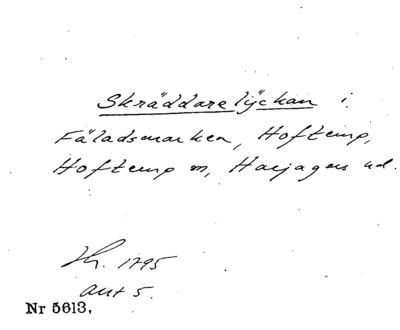 Skräddarelyckan i
Fäladsmarken, Hoftemp,
Hoftemp m, Harjagers hd.
Lh. 1795
akt 5.
Nr 5613.